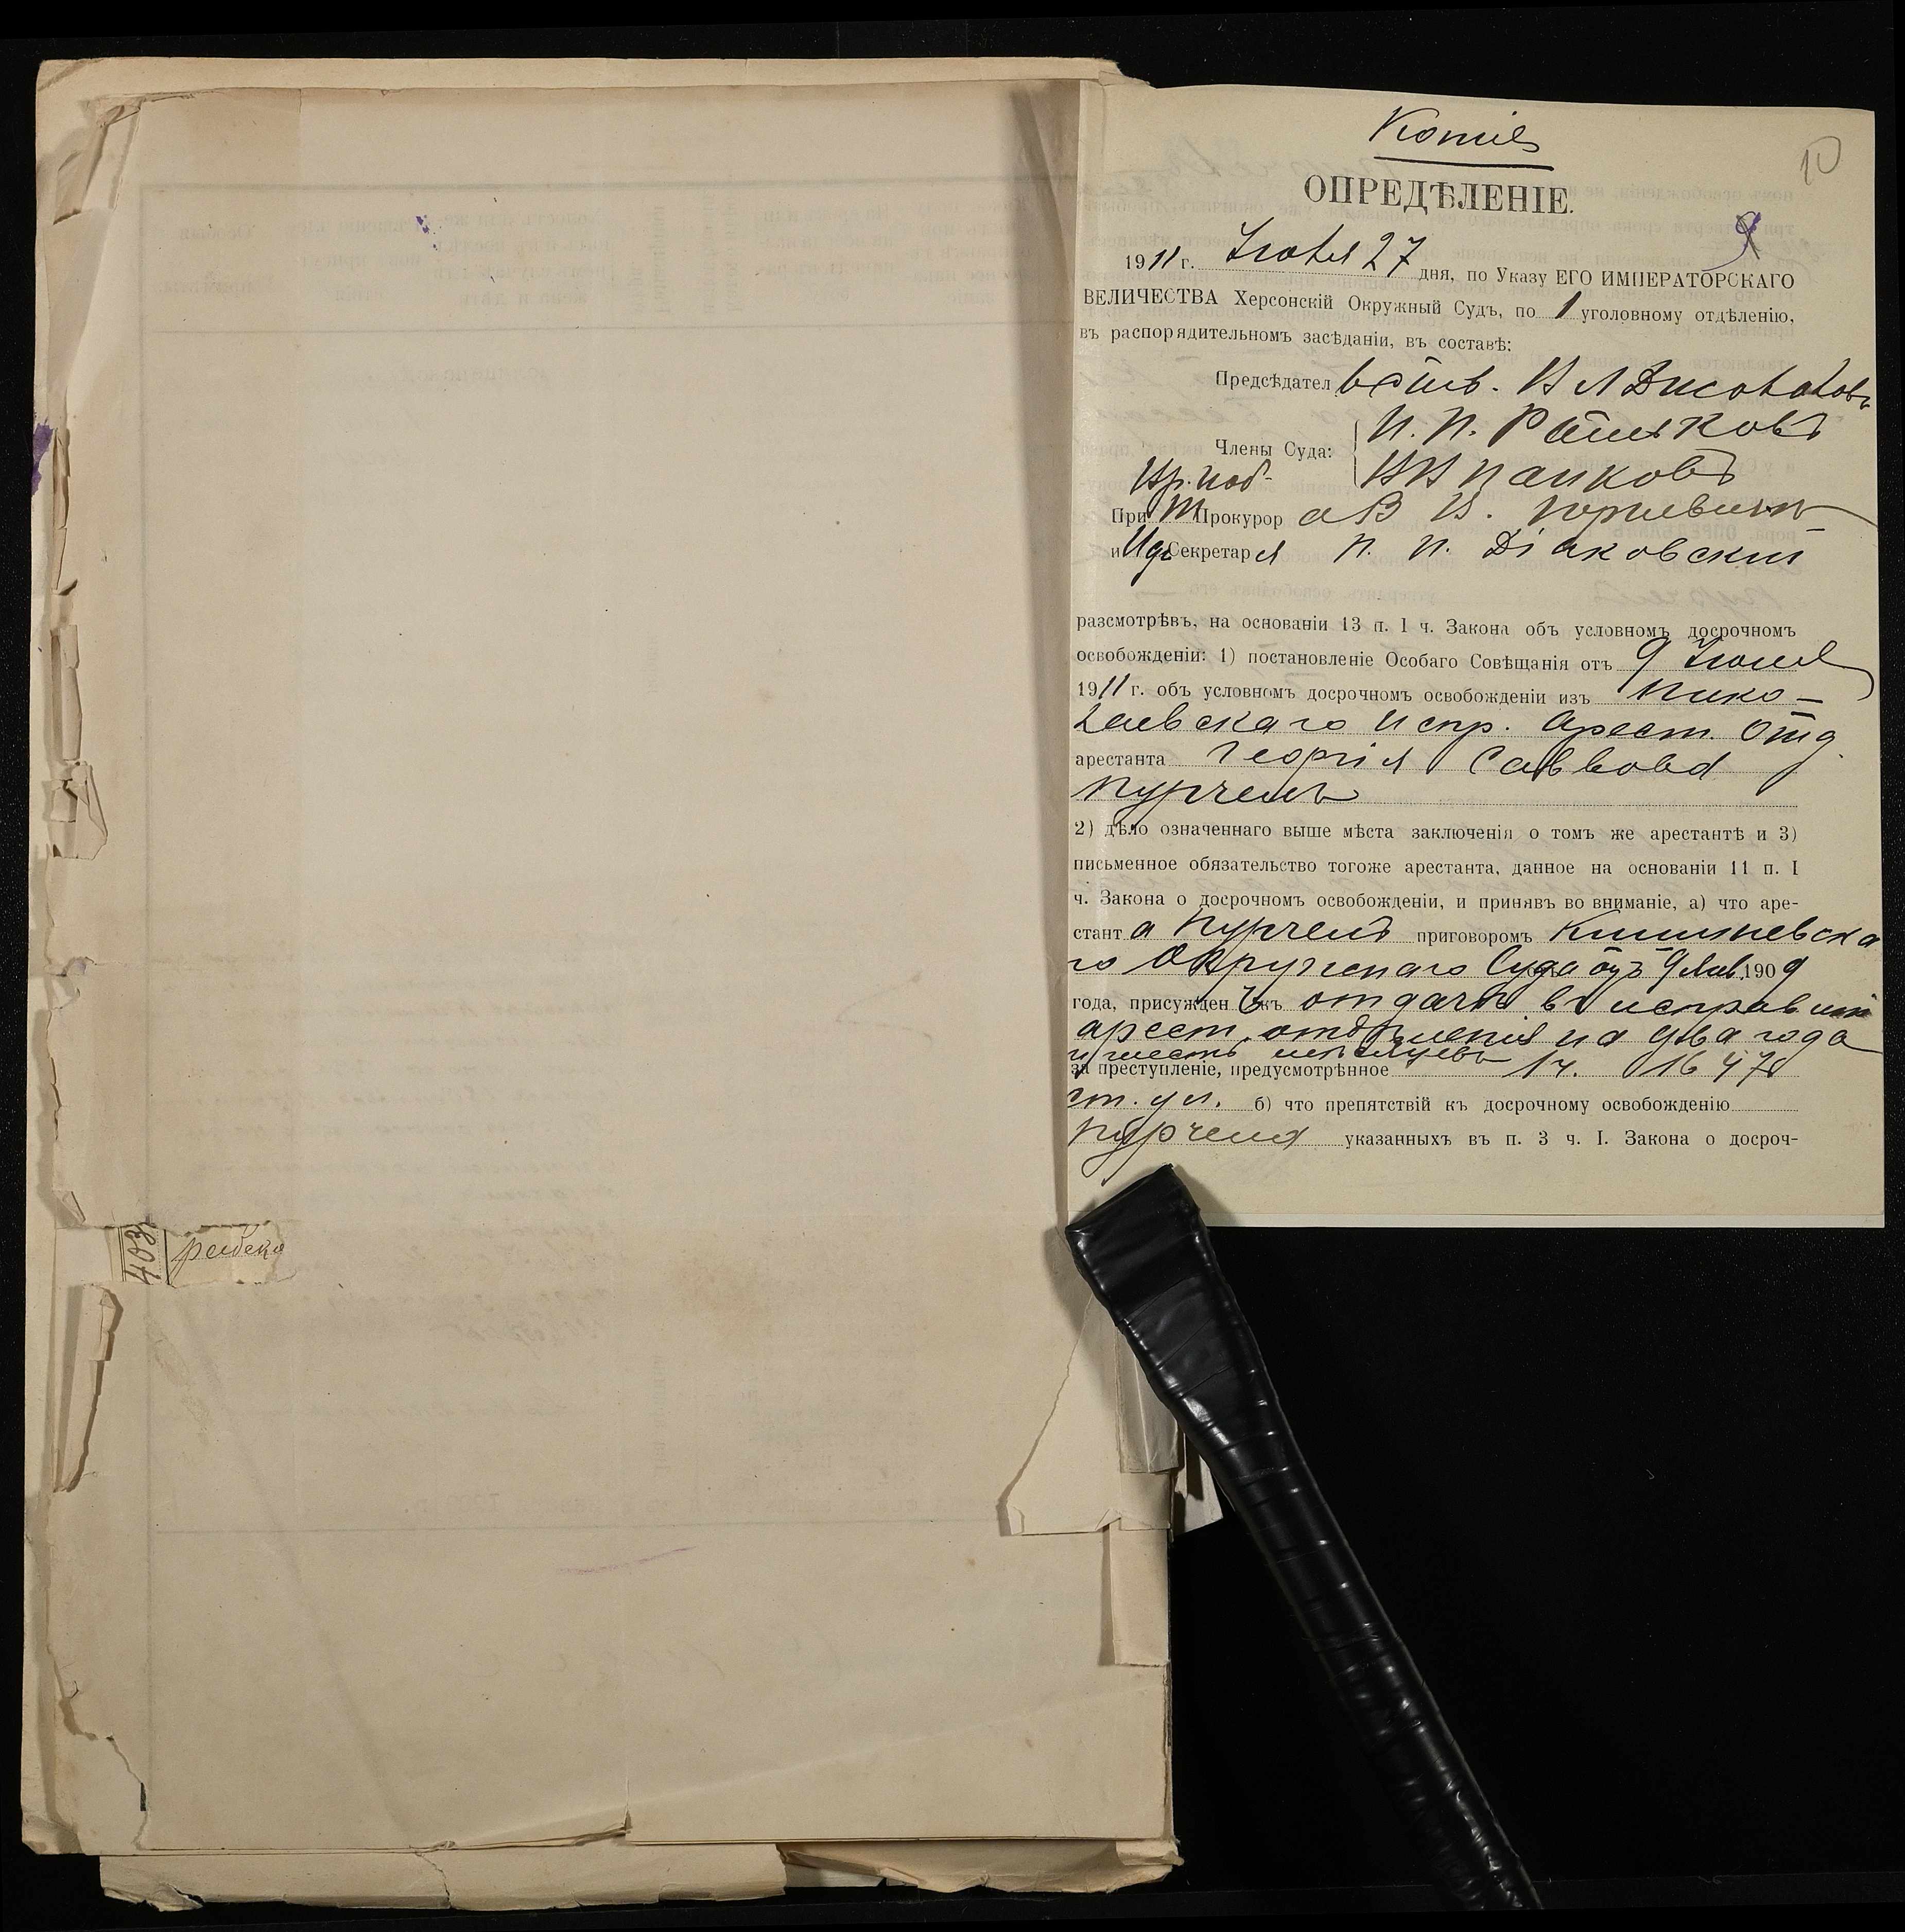 Копія
10
ОПРЕДѢЛЕНІЕ.
1911 г. Іюня 27 дня, по Указу ЕГО ИМПЕРАТОРСКАГО
ВЕЛИЧЕСТВА Херсонскій Окружный Судъ, по 1 уголовному отдѣленію,
въ распорядительномъ засѣданіи, въ составѣ:
Предсѣдател
Члены Суда:
При Прокурор
и Секретаря П. П. Діаковскій
разсмотрѣвъ, на основаніи 13 п. I ч. Закона объ условномъ досрочномъ
освобожденіи: 1) постановленіе Особаго Совѣщанія отъ 9 Іюня
1911 г. объ условномъ досрочномъ освобожденіи изъ Нико-
лаевскаго Испр. Арест. Отд.
арестанта Георгія Саввова
Пурчелъ
2) дѣло означеннаго выше мѣста заключенія о томъ же арестантѣ и 3)
письменное обязательство тогоже арестанта, данное на основаніи 11 п. I
ч. Закона о досрочномъ освобожденіи, и принявъ во вниманіе, а) что аре-
стант Пурчелъ приговоромъ Кишиневска
го Окружнаго Суда отъ 9 1909
года, присужденъ къ отдачѣ въ исправит
арест. отдѣленія на два года
и шесть мѣсяцевъ
за преступленіе, предусмотрѣнное 1 ч. 1647
ст. ул. б) что препятствій къ досрочному освобожденію
Пурчела указанныхъ въ п. 3 ч. I. Закона о досроч-
403